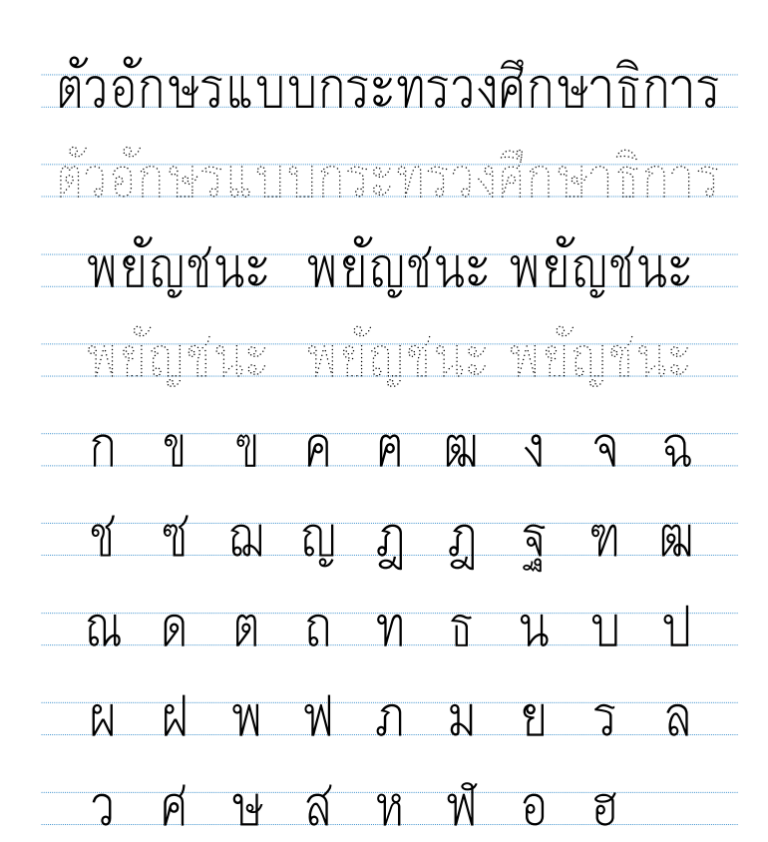 ตัวอักษรแบบกระทรวงศึกษาธิการ
ตัวอักษรแบบกระทรวงศึกษาธิการ
พยัญชนะ พยัญชนะ พยัญชนะ
พยัญชนะ พยัญชนะ พยัญชนะ
ก ข ฃ ค ฅ ฒ ง จ ฉ
ช ซ ฌ ญ ฎ ฎ ฐ ฑ ฒ
ณ ด ต ถ ท ธ น บ ป
ผ ฝ พ ฟ ภ ม ย ร ล
ว ศ ษ ส ห ฬ อ ฮ